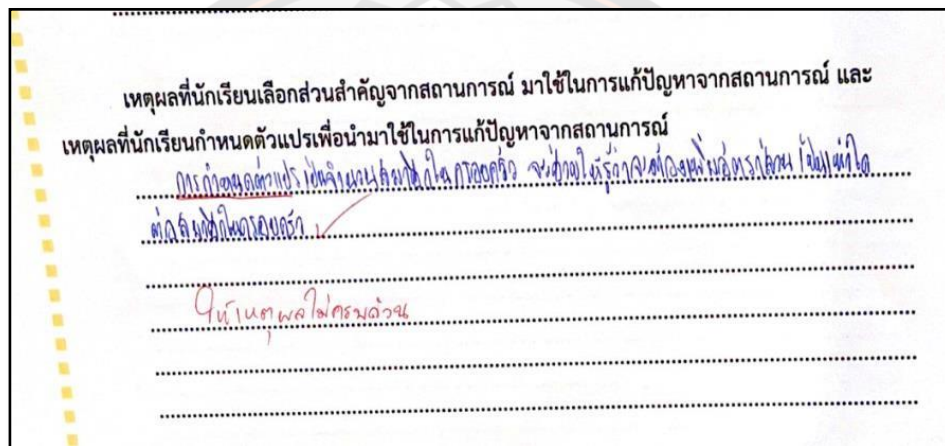 เหตุผลที่นักเรียนเลือกส่วนสำคัญจากสถานการณ์ มาใช้ในการแก้ปัญหาจากสถานการณ์ และ
เหตุผลที่นักเรียนกำหนดตัวแปรเพื่อนำมาใช้ในการแก้ปัญหาจากสถานการณ์
การกำหนดตัวแปรเป็นจำนวนสมาชิกในครอบครัว จะช่วยให้รู้ว่าจะต้องเพิ่มอัตราส่วนเป็นเท่าใด
ต่อสมาชิกในครอบครัว
ให้เหตุผลไม่ครบถ้วน